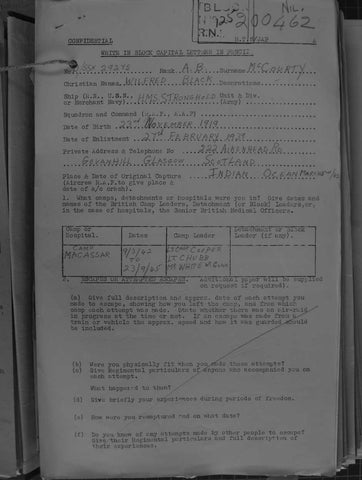 BLOCK NO.
9251
200462
R.N.
CONFIDENTIAL
WRITE IN BLOCK CAPITAL LETTERS IN PENCIL
No. SSX 29275 Rank A.B. Surname McCOURTY
Christian Names, WILFRED BLACK Decorations. -
Ship (R.N., U.S.N., or Merchant Navy). HMS STRONGHOLD Unit & Div. (Army) -
Squadron and Command (R.A.F., A.A.F) -
Date of Birth 22nd NOVEMBER 1919
Date of Enlistment 27th FEBRUARY 1939
Private Address & Telephone No 222 AIKENHEAD RD
GOVANHILL GLASGOW SCOTLAND
Place & Date of Original Capture INDIAN OCEAN MARCH
(Aircrew R.A.F. to give place & date of a/c crash).
1. What camps, detachments or hospitals were you in? Give dates and
names of the British Camp Leaders, Detachment (or Block) Leaders, or,
in the case of hospitals, the Senior British Medical Officers.
Camp or Hospital. Dates Camp Leader Detachment or Block Leader (if any).
CAMP MACASSAR 9/3/42 TO 23/9/45 COOPER
LT CHUBB
MR WHITE
2. ESCAPES OR ATTEMPTED ESCAPES. Additional paper will be supplied
on request if required).
(a) Give full description and approx. date of each attempt you
made to escape, showing how you left the camp, and from which
camp each attempt was made. (State whether there was an air-raid
in progress at the time or not. If an escape was made from a
train or vehicle the approx. speed and how it was guarded should
be included.
(b) Were you physically fit when you made these attempts?
(c) Give Regimental particulars of anyone who accompanied you on
each attempt.
What happened to them?
(d) Give briefly your experiences during periods of freedom.
(e) How were you recaptured and on what date?
(f) Do you know of any attempts made by other people to escape?
Give their Regimental particulars and full description of
their experiences.